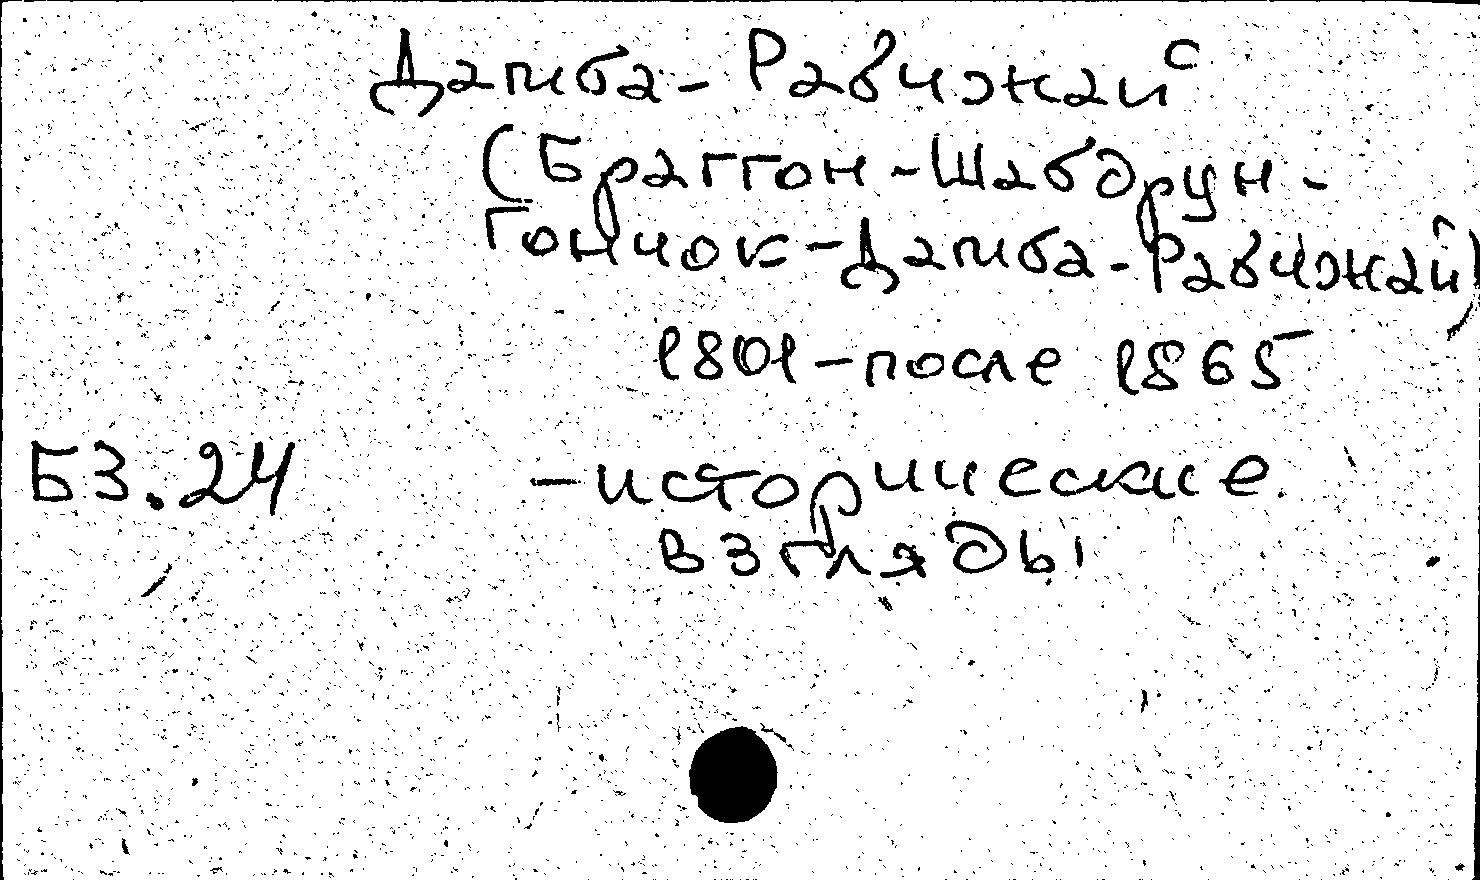 Далиба-Равчжай
(Браггон-Шабдрун-
Гончок-Далиба-Равчжай)
1801-после 1865
Б3.24 -исторические
взгляды